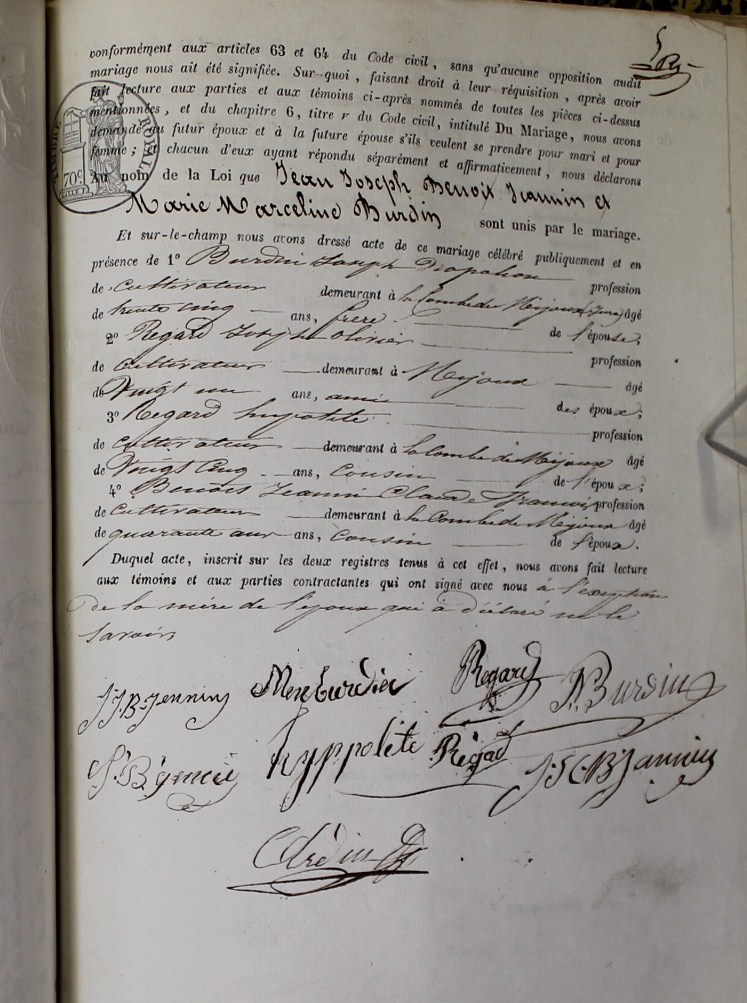 conformément aux articles 63 et 64 du Code civil, sans qu'aucune opposition audit
mariage nous ait été signifiée. Sur quoi, faisant droit à leur réquisition, après avoir
fait lecture aux parties et aux témoins ci-après nommés de toutes les pièces ci-dessus
mentionnées, et du chapitre 6, titre v du Code civil, intitulé Du Mariage, nous avons
demandé au futur époux et à la future épouse s'ils veulent se prendre pour mari et pour
femme; et chacun d'eux ayant répondu séparément et affirmativement, nous déclarons
Au nom de la Loi que Jean Joseph Benoit Jeannin et
Marie Marceline Burdin sont unis par le mariage.
Et sur-le-champ nous avons dressé acte de ce mariage célébré publiquement et en
présence de 1° Burdin Joseph profession
de cultivateur demeurant à la Combe de Mijoux (Jura) âgé
de trente cinq ans, frère de l'épouse;
2° Regard Joseph Olivier profession
de cultivateur demeurant à Mijoux âgé
de Vingt un ans, ami des époux;
3° Regard hypolite profession
de cultivateur demeurant à la Combe de Mijoux âgé
de Vingt Cinq ans, Cousin de l'époux;
4° Benoit Jeannin Claude François profession
de cultivateur demeurant à la Combe de Mijoux âgé
de quarante ans, Cousin de l'époux.
Duquel acte, inscrit sur les deux registres tenus à cet effet, nous avons fait lecture
aux témoins et aux parties contractantes qui ont signé avec nous à l'exception
de la mère de l'époux qui a déclaré ne le
savoir
J J B Jennin Regard Burdin
hyppolite Régad J. F. C. B Jannin